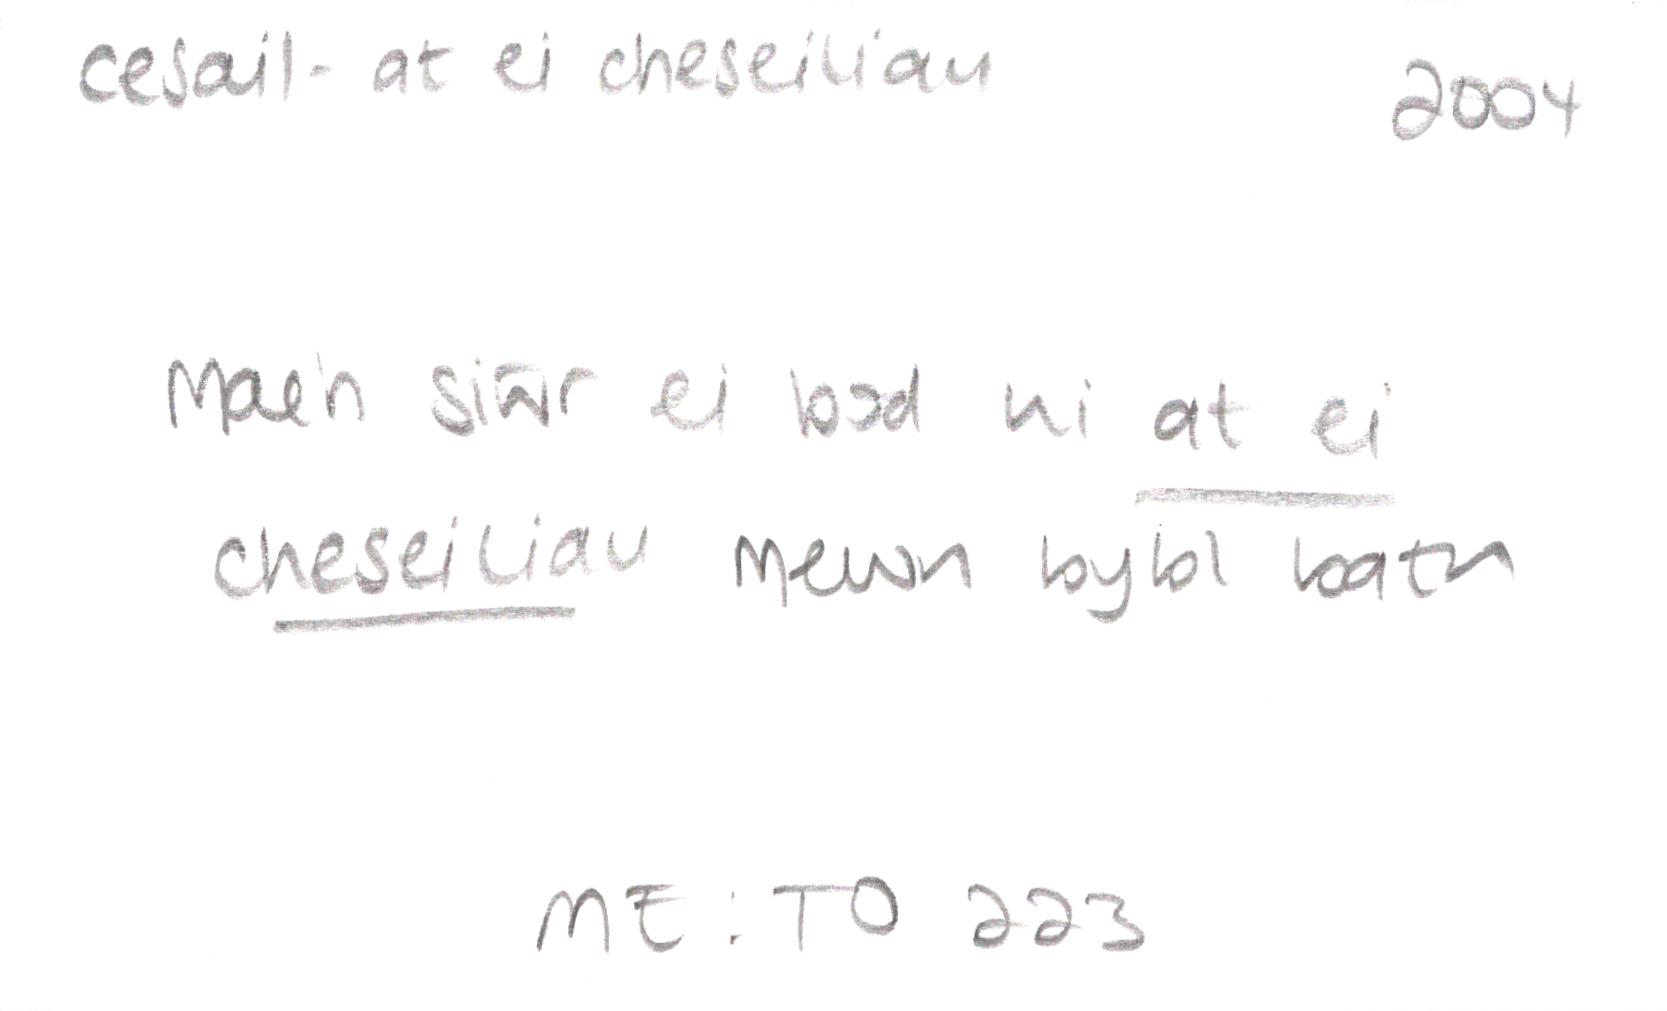 cesail - at ei cheseiliau 2004
Mae'n siŵr ei bod hi at ei
cheseiliau mewn bybl bath
ME : TO 223